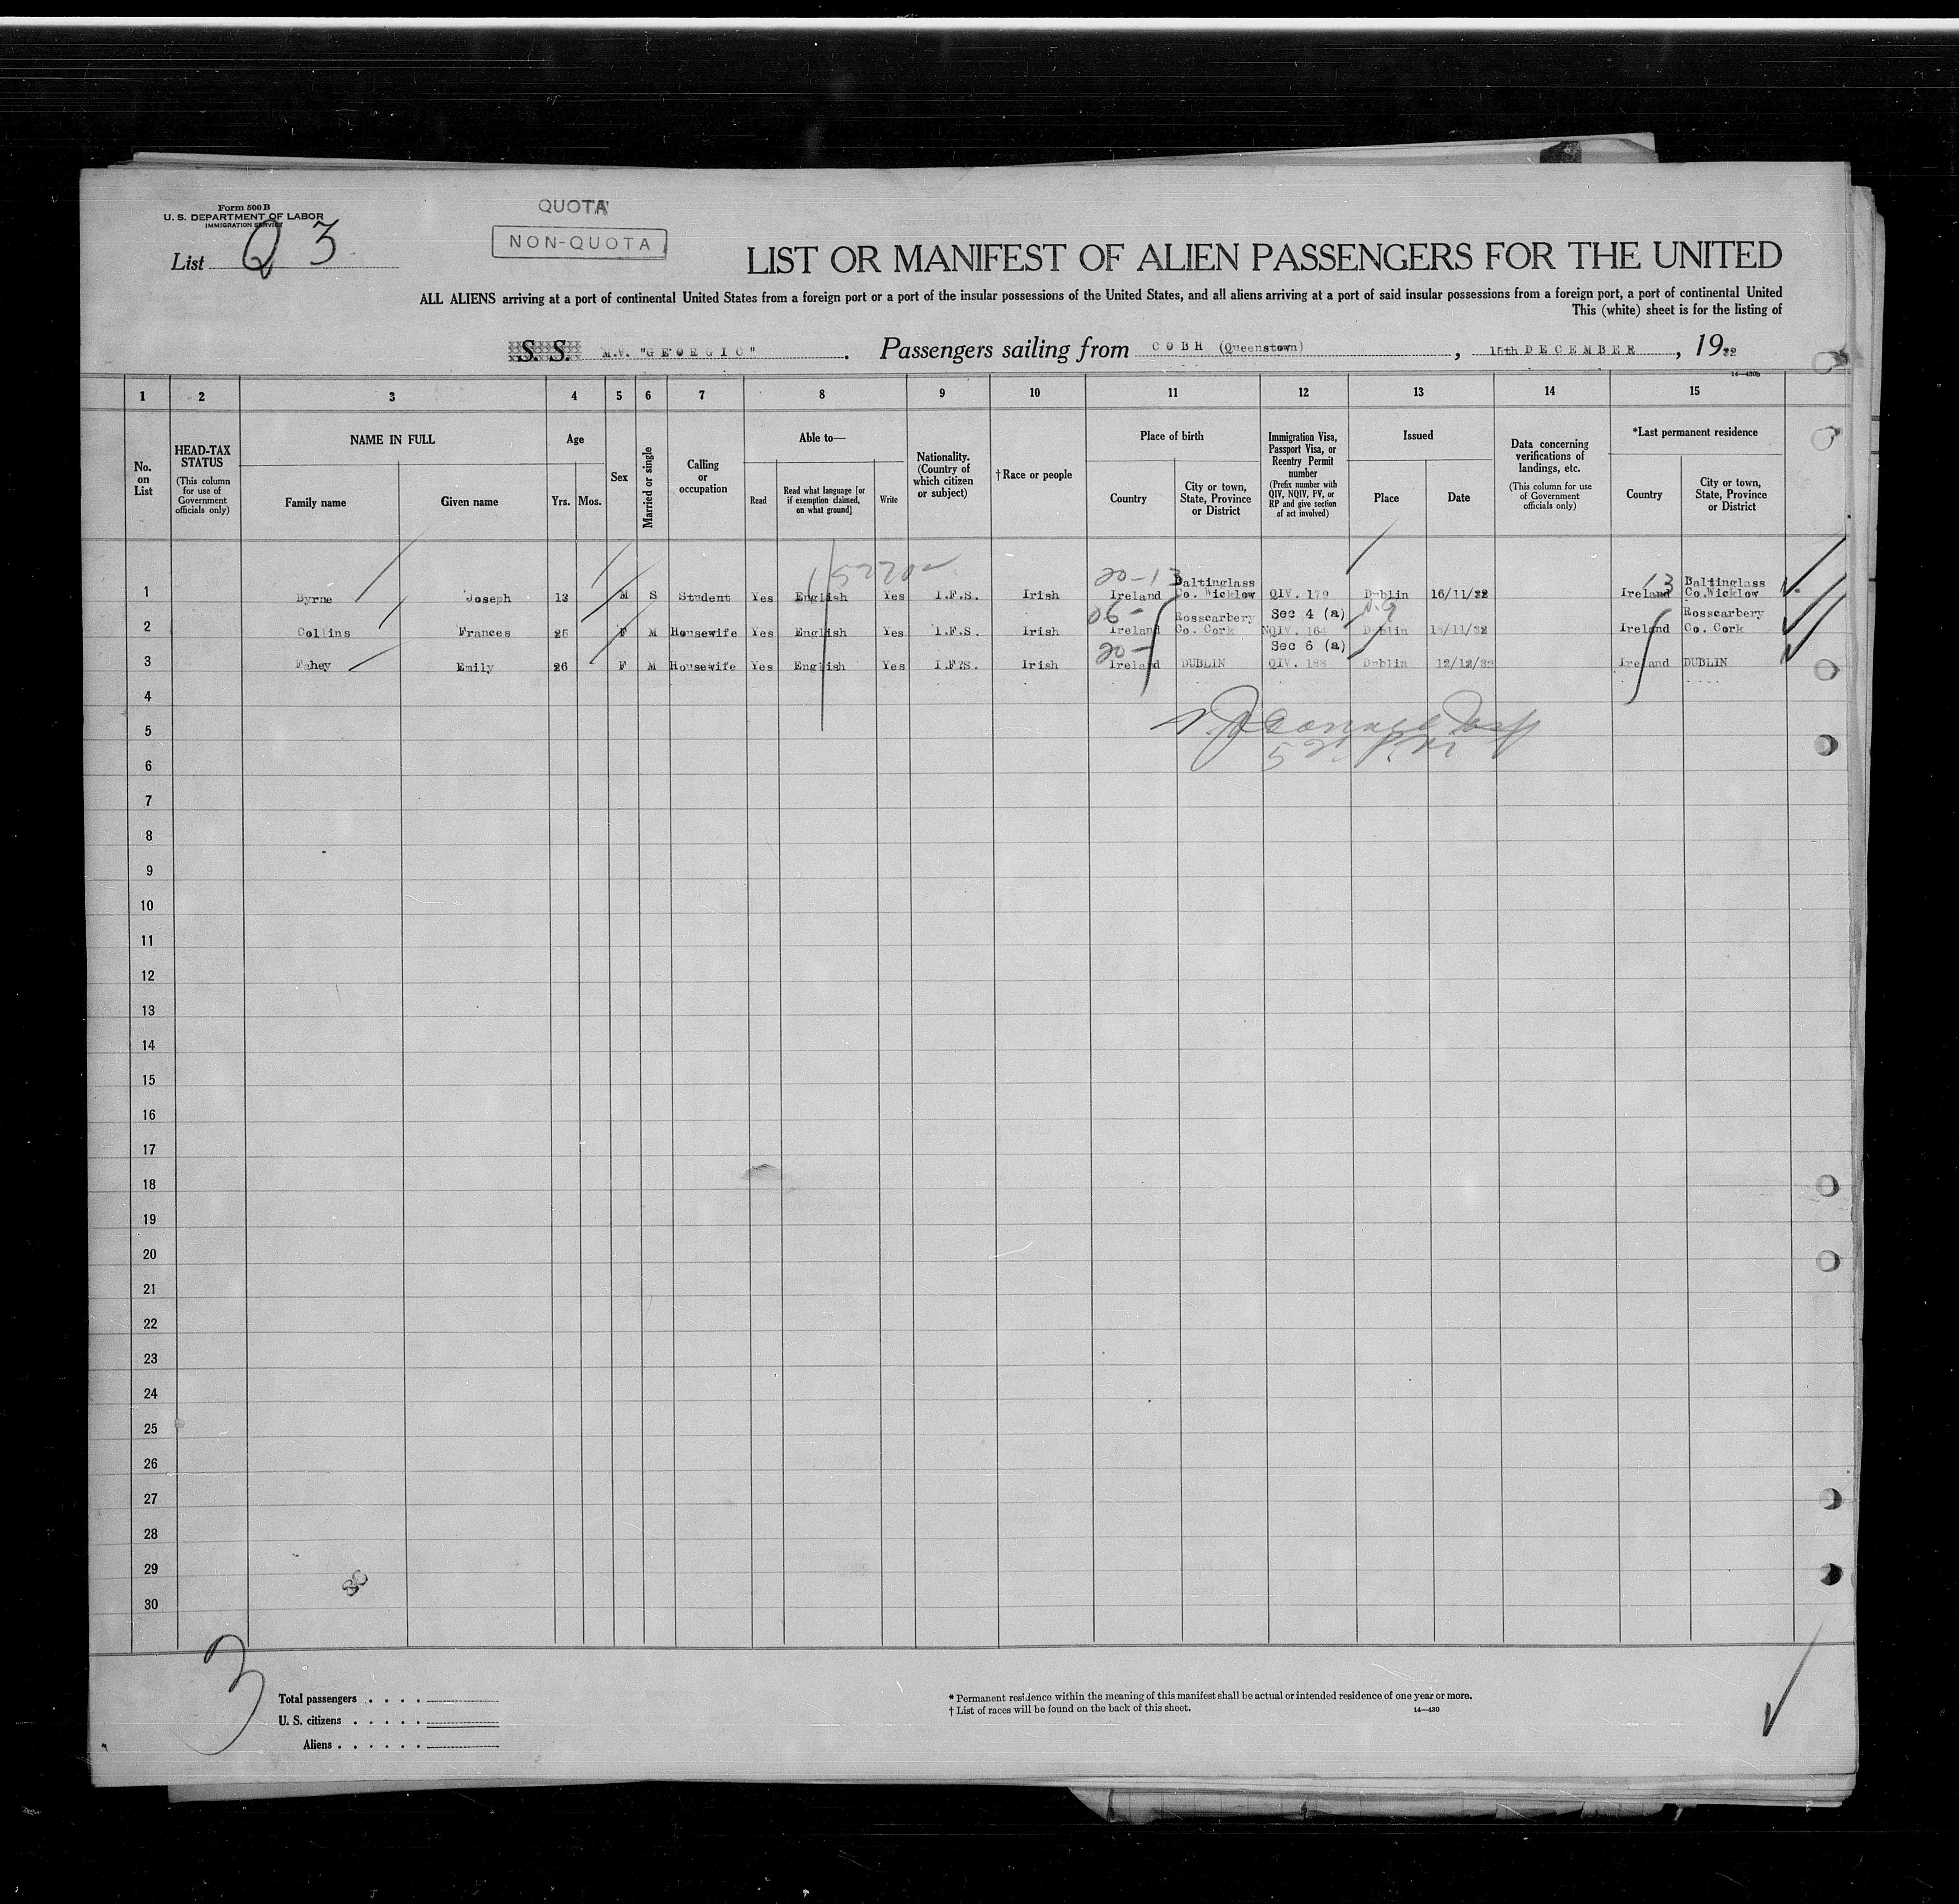 Form 500 B
U. S. DEPARTMENT OF LABOR
IMMIGRATION SERVICE
List Q 3
QUOTA
NON-QUOTA
LIST OR MANIFEST OF ALIEN PASSENGERS FOR THE UNITED
ALL ALIENS arriving at a port of continental United States from a foreign port or a port of the insular possessions of the United States, and all aliens arriving at a port of said insular possessions from a foreign port, a port of continental United
This (white) sheet is for the listing of
S. S. M.V. "GEORGIC". Passengers sailing from COBH (Queenstown), 15th DECEMBER, 1932
14—430b
1 2 3 4 5 6 7 8 9 10 11 12 13 14 15
No. on List
HEAD-TAX STATUS
(This column for use of Government officials only)
NAME IN FULL
Family name
Given name
Age
Yrs.
Mos.
Sex
Married or single
Calling or occupation
Able to—
Read
Read what language [or if exemption claimed, on what ground]
Write
Nationality. (Country of which citizen or subject)
†Race or people
Place of birth
Country
City or town, State, Province or District
Immigration Visa, Passport Visa, or Reentry Permit number
(Prefix number with QIV, NQIV, PV, or RP and give section of act involved)
Issued
Place
Date
Data concerning verifications of landings, etc.
(This column for use of Government officials only)
*Last permanent residence
Country
City or town, State, Province or District
20-13
13
1 Byrne Joseph 13 M S Student Yes English Yes I.F.S. Irish Ireland Baltinglass Co. Wicklow QIV. 179 Dublin 16/11/32 Ireland Baltinglass Co.Wicklow
06-
2 Collins Frances 25 F M Housewife Yes English Yes I.F.S. Irish Ireland Rosscarbery Co. Cork Sec 4 (a) NQIV. 164 Dublin 18/11/32 Ireland Rosscarbery Co. Cork
20-
3 Fahey Emily 26 F M Housewife Yes English Yes I.F.S. Irish Ireland DUBLIN Sec 6 (a) QIV. 188 Dublin 12/12/32 Ireland DUBLIN
4
5
6
7
8
9
10
11
12
13
14
15
16
17
18
19
20
21
22
23
24
25
26
27
28
29
30
3
Total passengers . . . .
U. S. citizens . . . . .
Aliens . . . . . .
* Permanent residence within the meaning of this manifest shall be actual or intended residence of one year or more.
† List of races will be found on the back of this sheet.
14—430